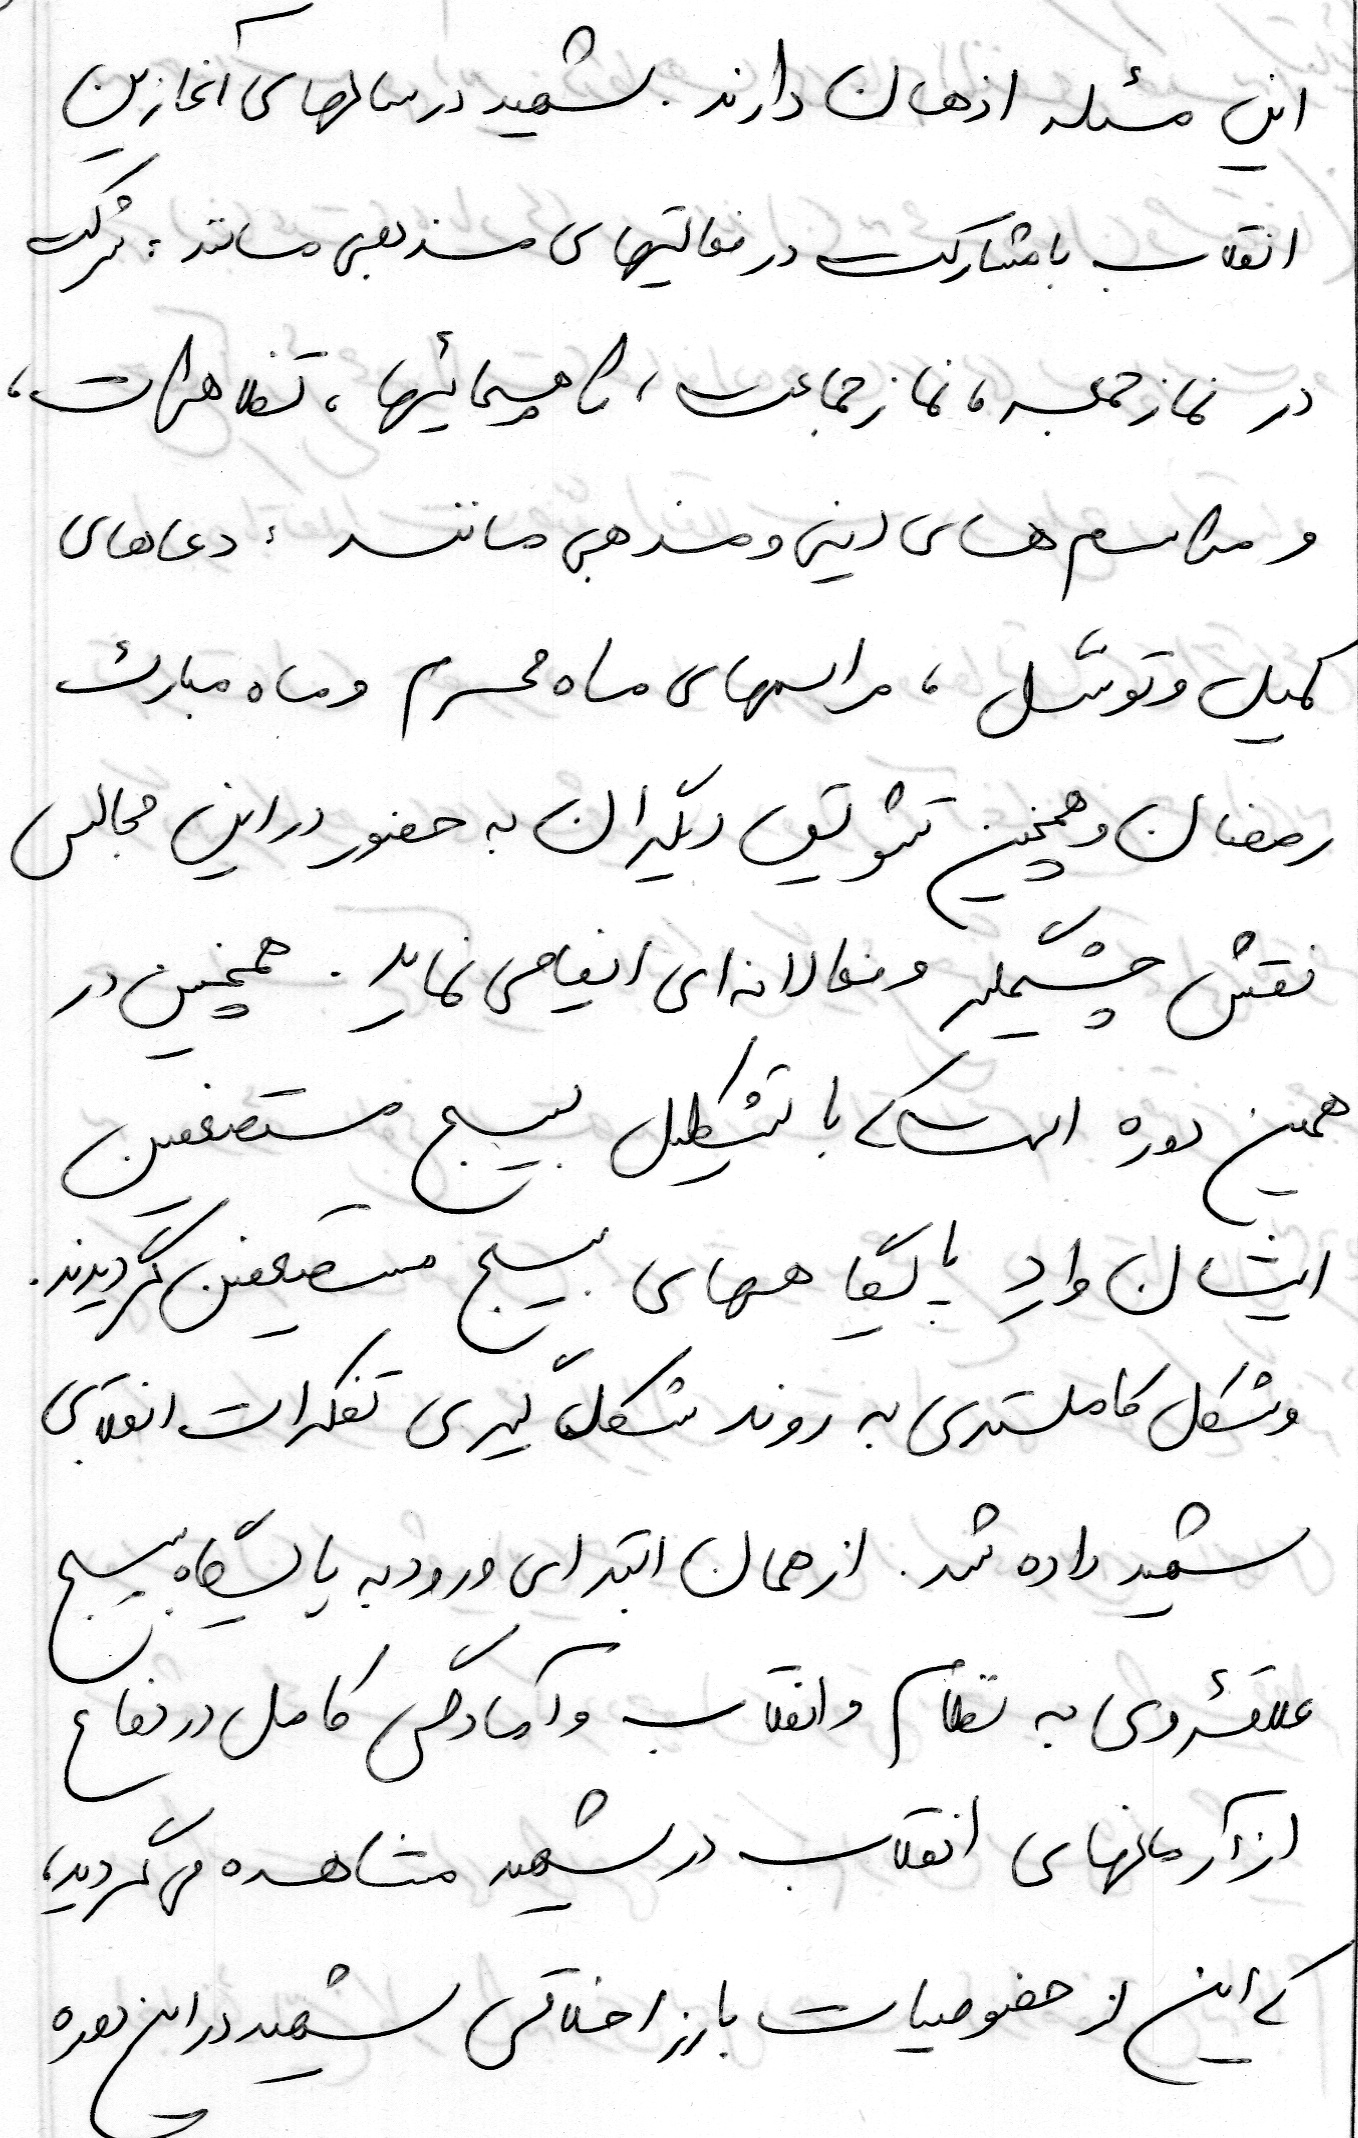 این مسئله اذهان دارند. شهید در سالهای آغازین
انقلاب با مشارکت در فعالیتهای مذهبی مانند: شرکت
در نماز جمعه، نماز جماعت، راهپیمائیها، تظاهرات،
و مراسم های دینی و مذهبی مانند: دعاهای
کمیل و توسّل، مراسمهای ماه محرم و ماه مبارک
رمضان و همچنین تشویق دیگران به حضور در این مجالس
نقش چشمگیر و فعالانه ای ایفا می نماید. همچنین در
همین دوره است که با تشکیل بسیج مستضعفین
ایشان وارد پایگاههای بسیج مستضعفین گردیدند.
و شکل کاملتری به روند شکل گیری تفکرات انقلابی
شهید داده شد. از همان ابتدای ورود به پایگاه بسیج
علاقۀ وی به نظام و انقلاب و آمادگی کامل در دفاع
از آرمانهای انقلاب در شهید مشاهده می گردید،
که این از خصوصیات بارز اخلاقی شهید در این دوره